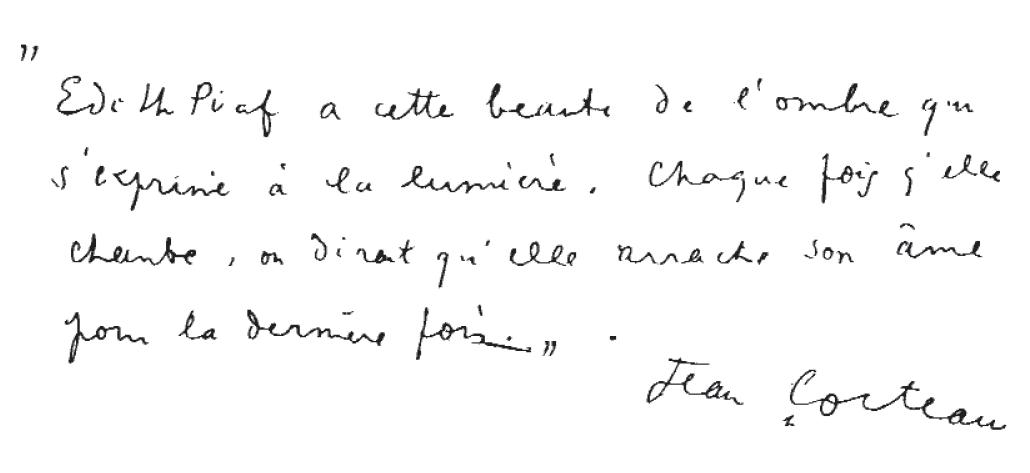 "
Edith Piaf a cette beauté de l'ombre qui
s'exprime à la lumière. Chaque fois qu'elle
chante, on dirait qu'elle arrache son âme
pour la dernière fois.„ .
Jean Cocteau